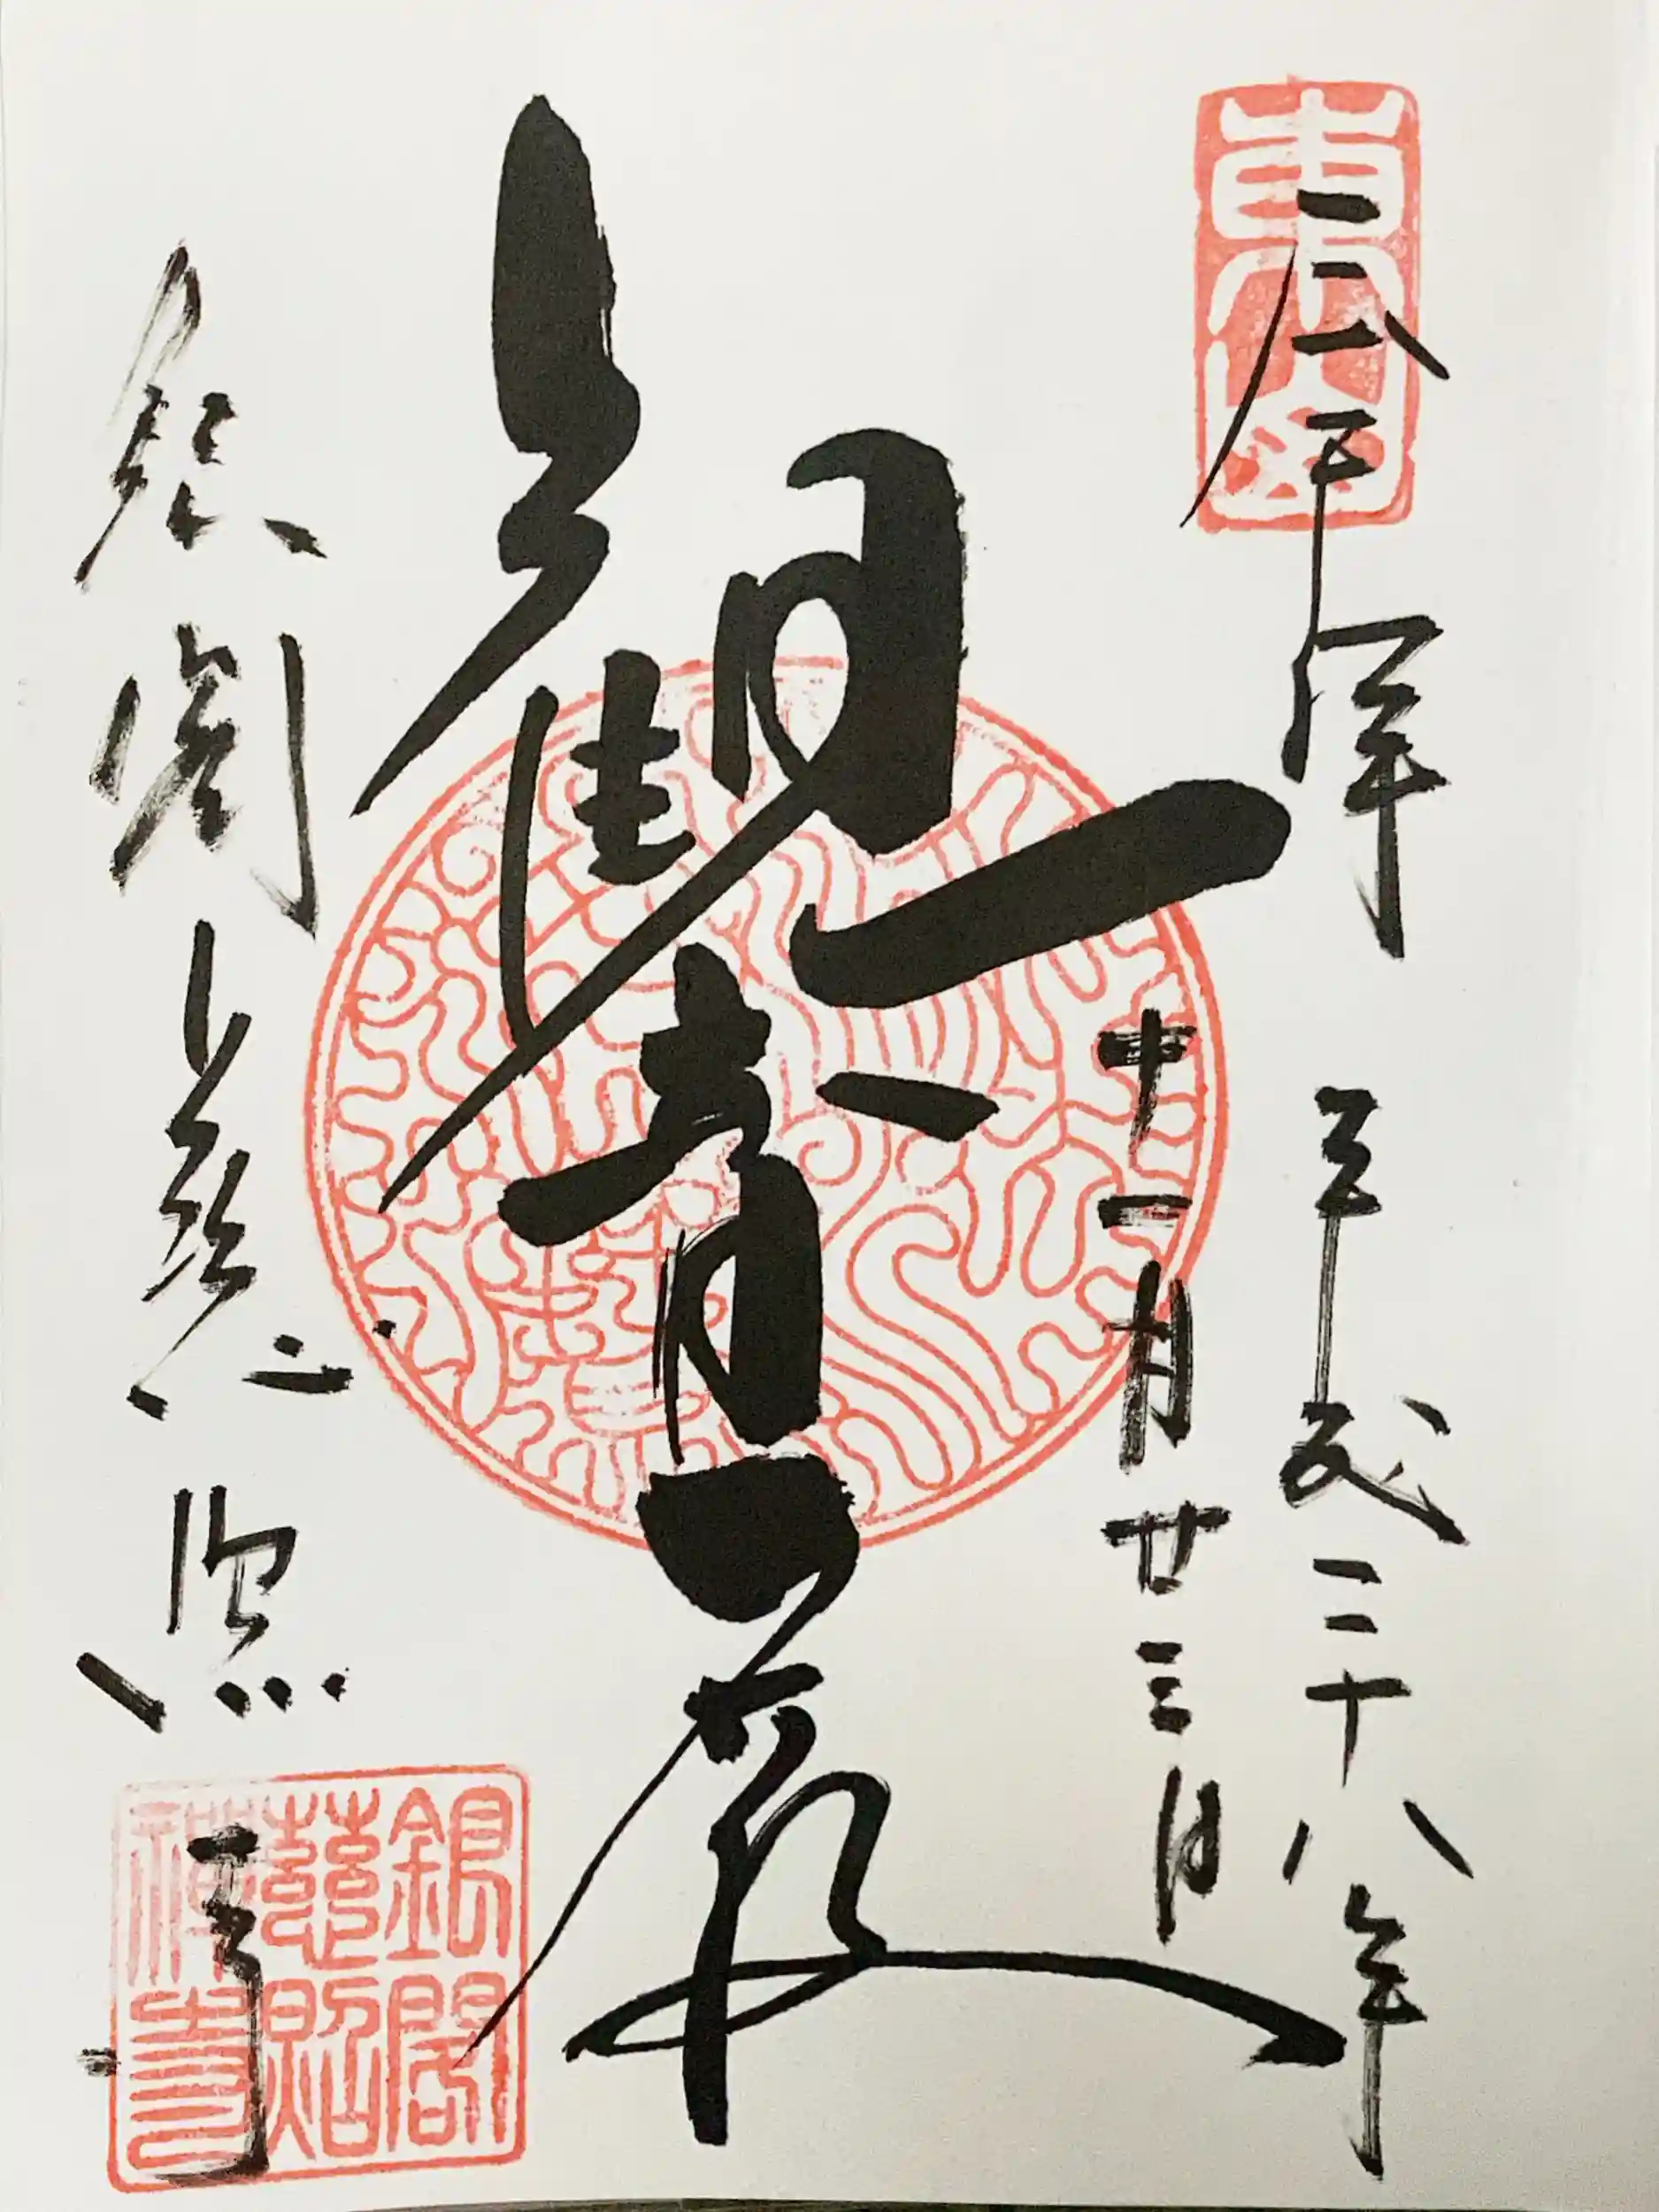 東山
奉拝 平成二十八年
十一月廿三日
觀音殿
銀閣慈照寺
銀閣
慈照
禅寺